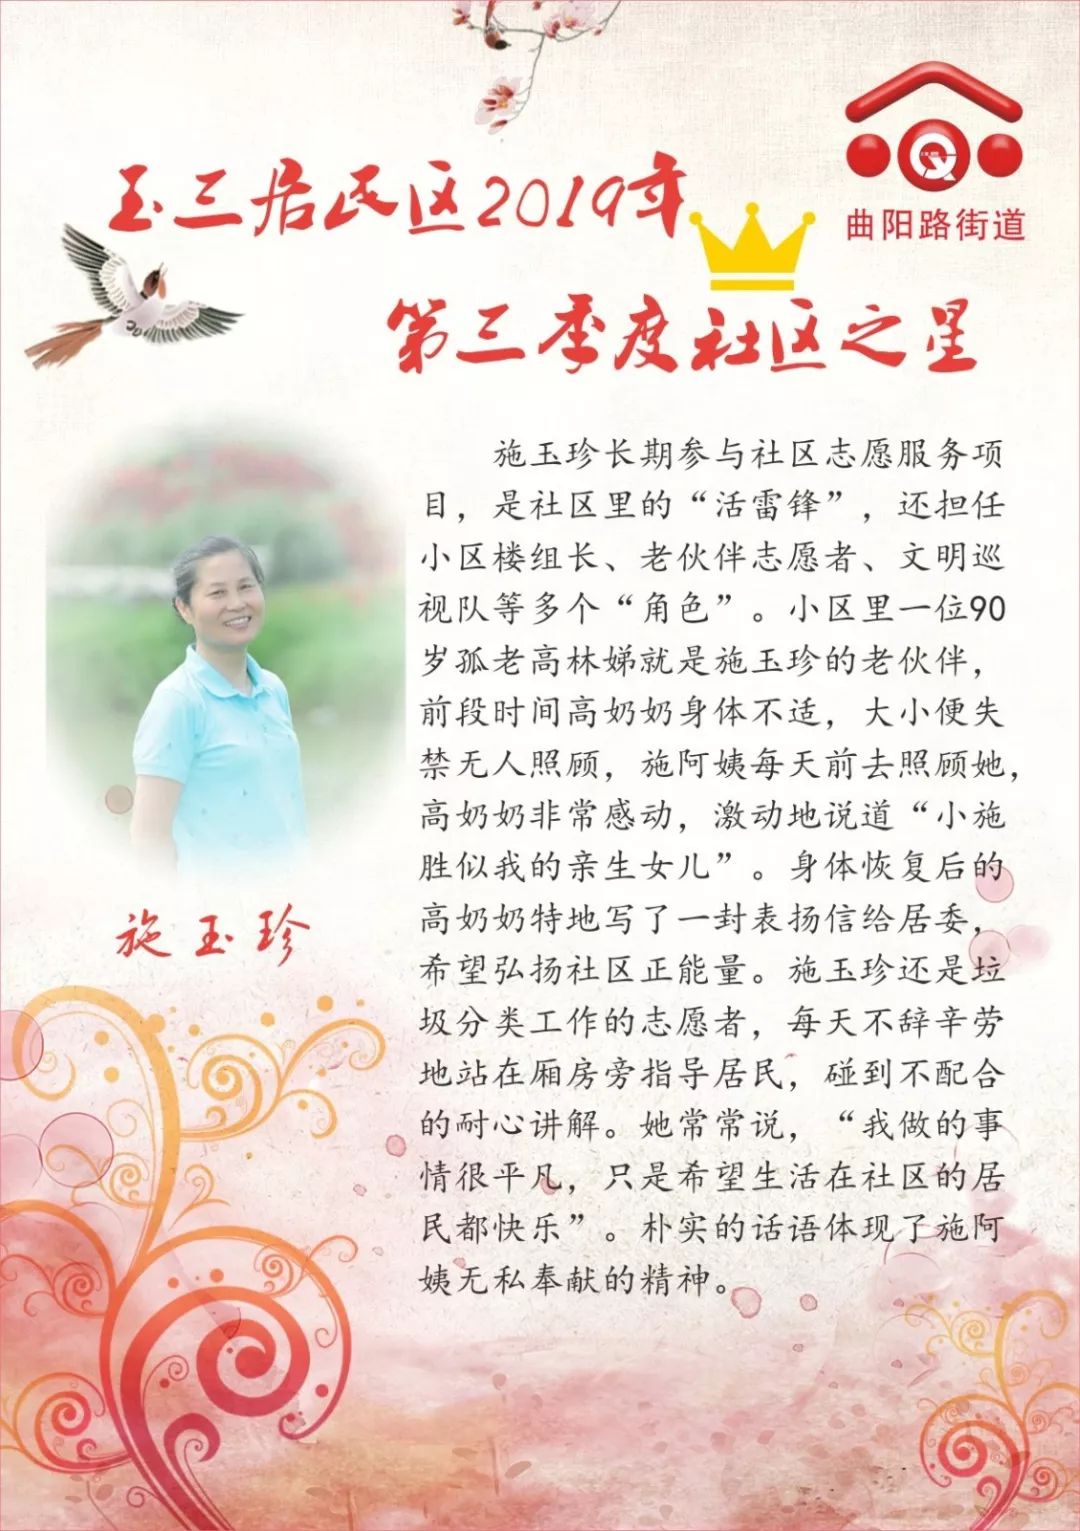 玉三居民区2019年
曲阳路街道
第三季度社区之星
施玉珍长期参与社区志愿服务项
目，是社区里的“活雷锋”，还担任
小区楼组长、老伙伴志愿者、文明巡
视队等多个“角色”。小区里一位90
岁孤老高林娣就是施玉珍的老伙伴，
前段时间高奶奶身体不适，大小便失
禁无人照顾，施阿姨每天前去照顾她，
高奶奶非常感动，激动地说道“小施
胜似我的亲生女儿”。身体恢复后的
高奶奶特地写了一封表扬信给居委，
希望弘扬社区正能量。施玉珍还是垃
圾分类工作的志愿者，每天不辞辛劳
地站在厢房旁指导居民，碰到不配合
的耐心讲解。她常常说，“我做的事
情很平凡，只是希望生活在社区的居
民都快乐”。朴实的话语体现了施阿
姨无私奉献的精神。
施玉珍